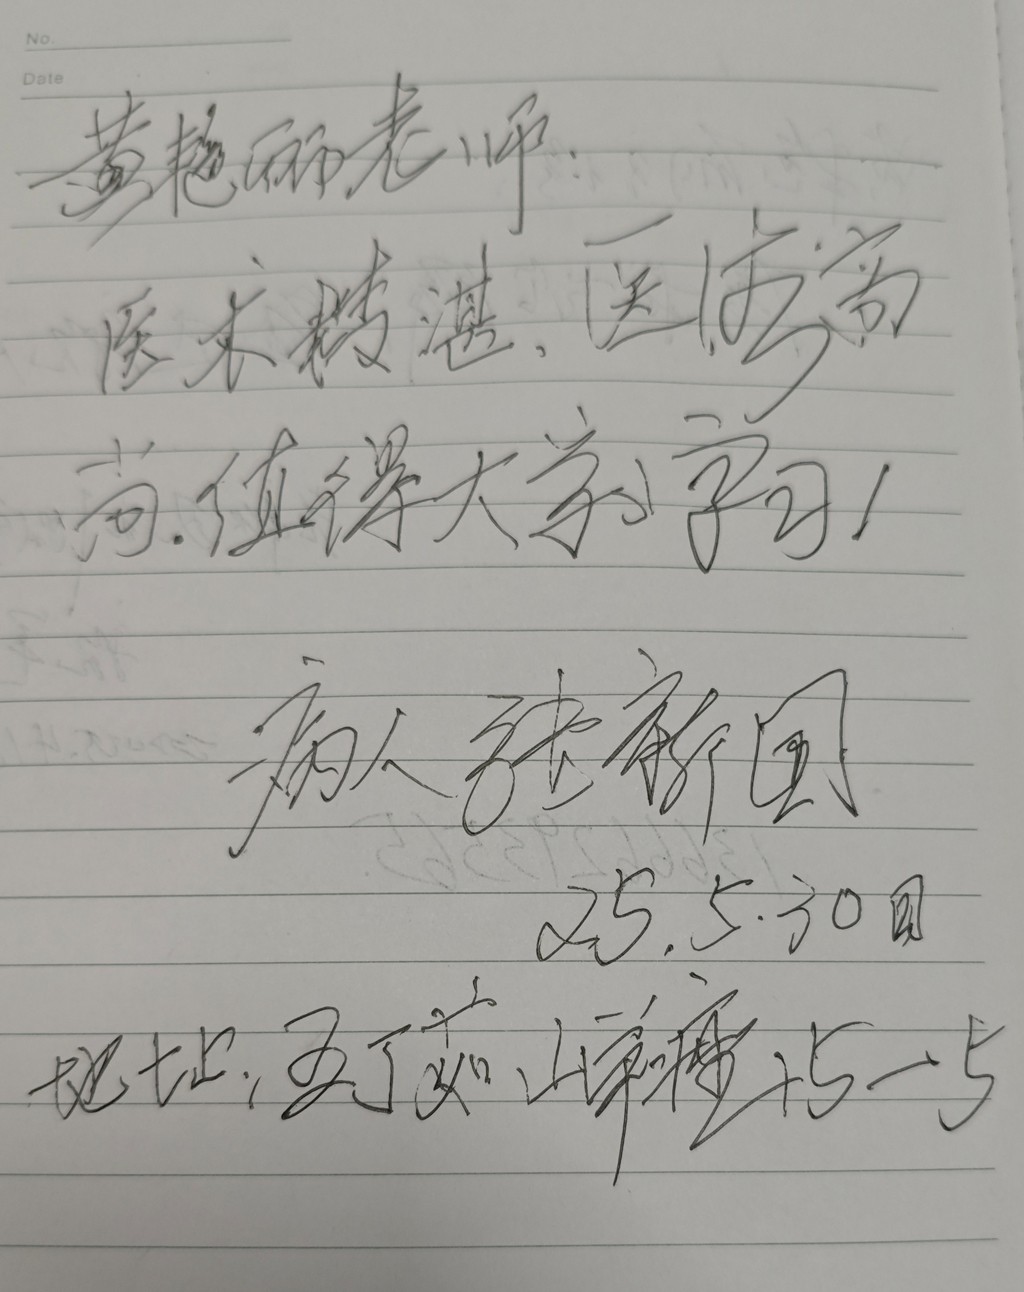 No.
Date
黄艳丽老师.
医术精湛、医德高
尚.值得大家学习!
病人张新国
25.5.30日
地址:
15-5